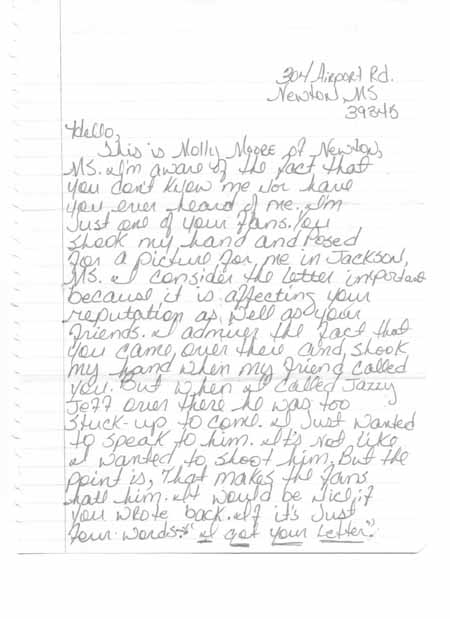 304 Airport Rd.
Newton, MS
39345
Hello,
This is Molly Mgee of Newton,
MS. I'm aware of the fact that
you don't know me nor have
you ever heard of me. I'm
just one of your fans. You
shook my hand and posed
for a picture for me in Jackson,
MS. I consider the letter important
because it is affecting your
reputation as well as your
friends. I admire the fact that
you came over there and shook
my hand when my friend called
you. But when I called Jazzy
Jeff over there he was too
stuck-up to come. I just wanted
to speak to him. It's not like
I wanted to shoot him, But the
point is, That makes the fans
hate him. It would be nice if
you wrote back. If it's just
four words: "I got your letter."